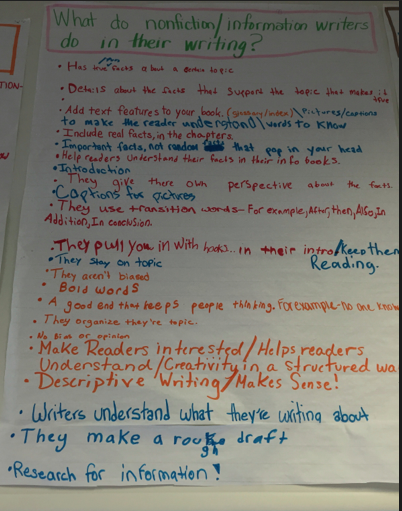 What do nonfiction/information writers
do in their writing?
• Has true facts about a certain topic
• Details about the facts that support the topic that makes it
true
• Add text features to your book. (glossary/index)\Pictures/captions
to make the reader understand\words to know
• Include real facts, in the chapters.
• Important facts, not random that pop in your head
• Help readers understand their facts in their info books.
• Introduction
• They give there own perspective about the facts.
• Captions for pictures
• They use transition words- For example, After, then, Also, In
Addition, In conclusion.
• They pull you in with hooks... in their intro/keep them
Reading.
• They stay on topic
• They aren't biased
• Bold words
• A good end that keeps people thinking. For example-no one know
• They organize they're topic.
• No Bias or opinion
• Make Readers interested/Helps readers
Understand/Creativity in a structured wa
• Descriptive Writing/Makes Sense!
• Writers understand what they're writing about
• They make a rough draft
• Research for information!
TION-